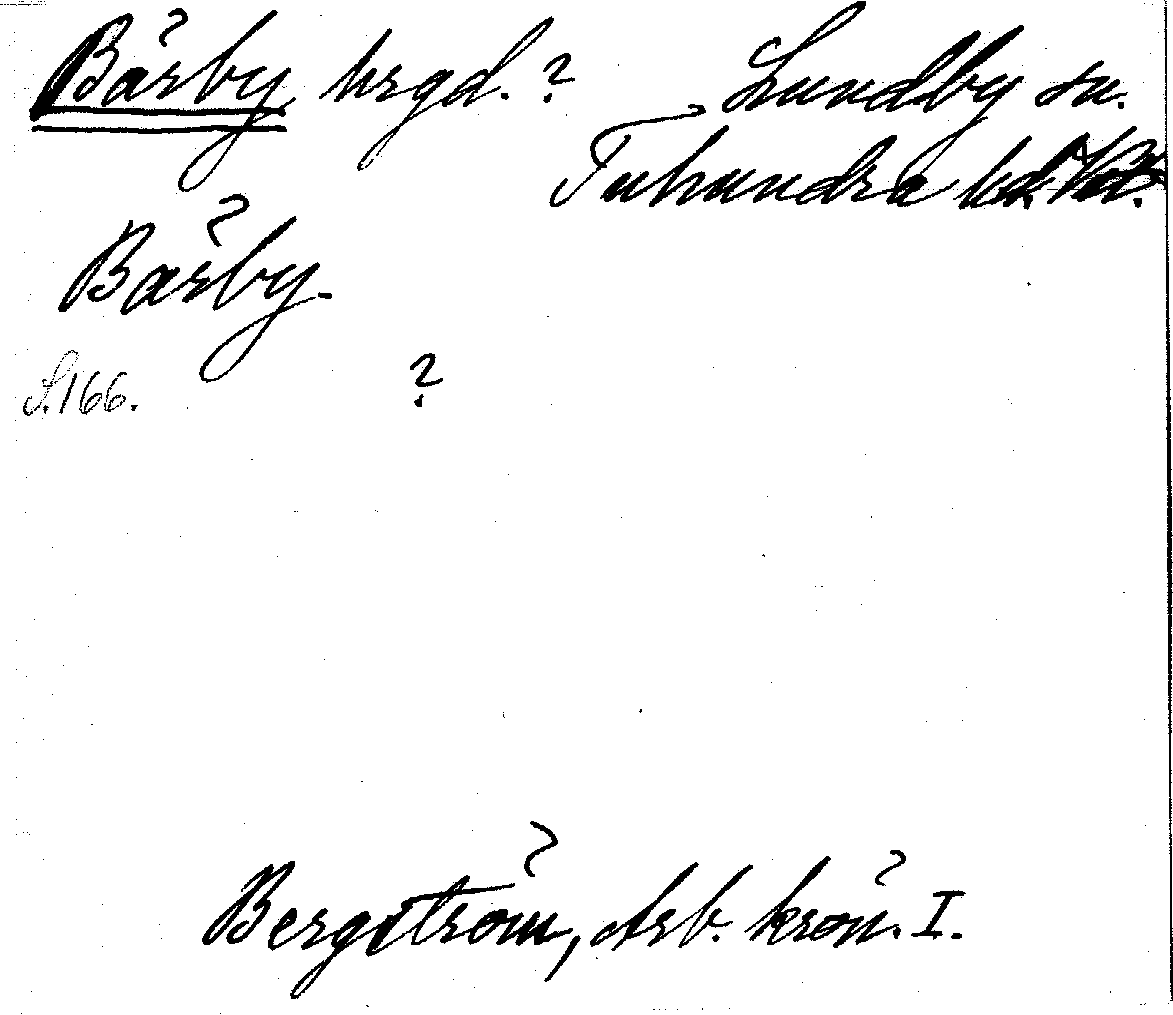 Bärby hrgd.? Lundby sn.
Tuhundra hd.
Bärby.
S. 166. ?
Bergström, Arb. krön. I.